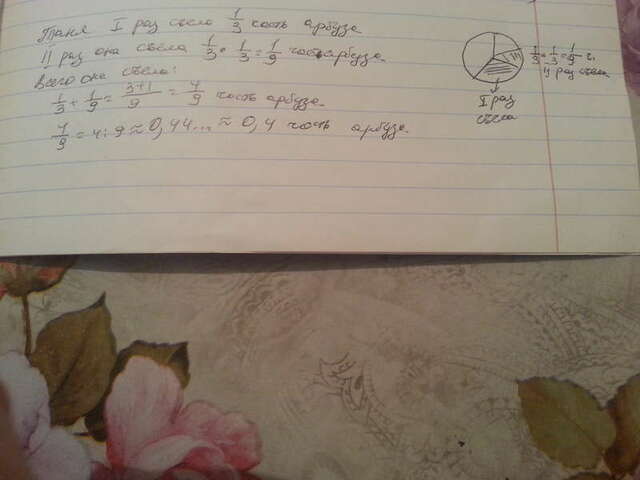 Таня I раз съела 1/3 часть арбуза
II раз она съела 1/3 · 1/3 = 1/9 часть арбуза
Всего она съела:
1/3 + 1/9 = 3+1/9 = 4/9 часть арбуза
4/9 = 4:9 ≈ 0,44... ≈ 0,4 часть арбуза
1/3 · 1/3 = 1/9 ч.
II раз съела
I раз
съела